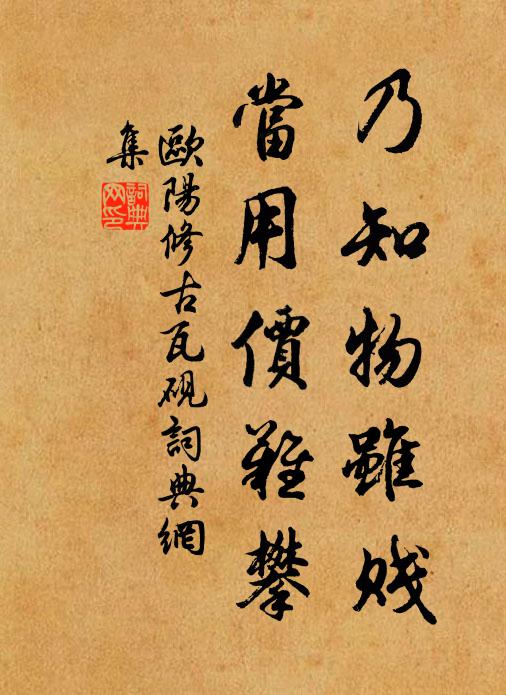 乃知物雖賤
當用價難攀
歐陽修古瓦硯詞典網
集
詞典网印